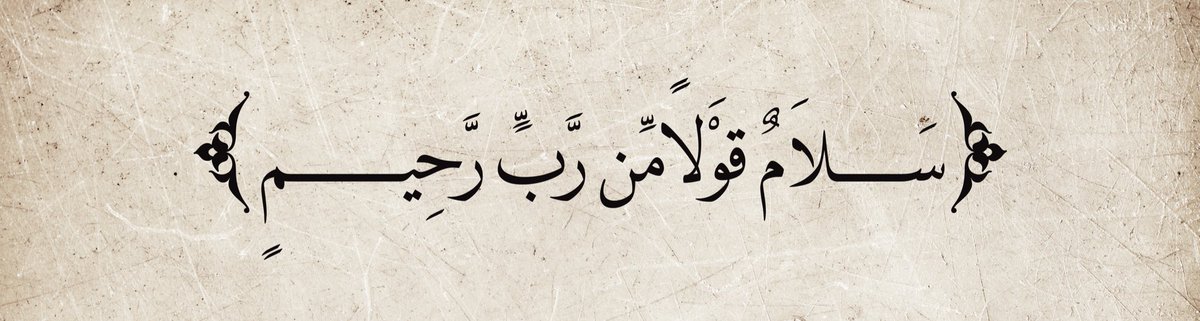 ﴿سَلَامٌ قَوْلًا مِّن رَّبٍّ رَّحِيمٍ﴾